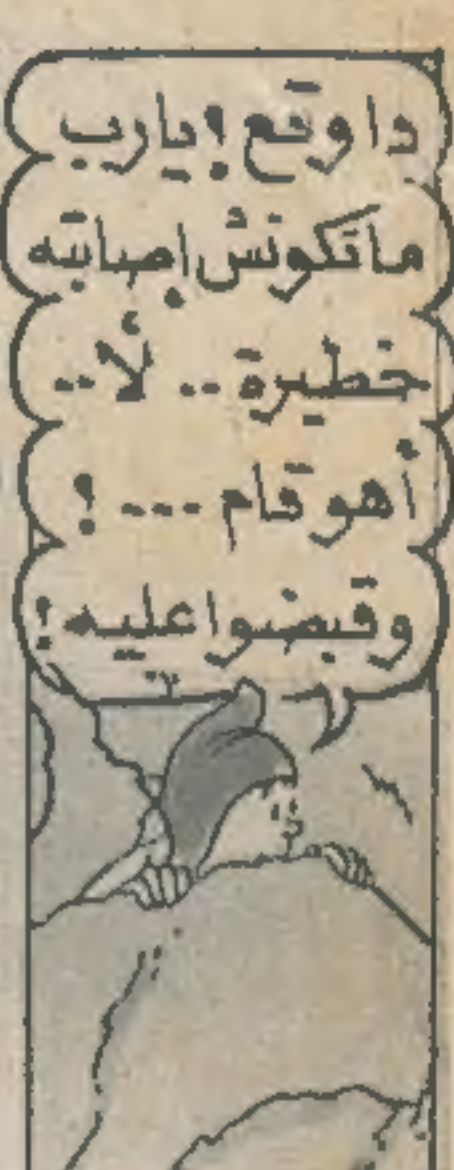 دا وقع ! يارب
ماتكونش إصابته
خطيرة .. لأ ..
أهو قام ... !
وقبضوا عليه !